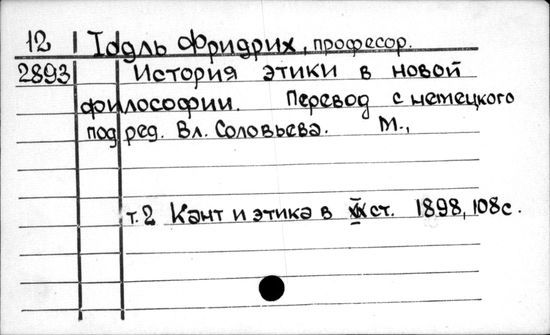 12 Іодль Фридрих, професор.
2893 История этики в новой
философии. Перевод с немецкого
под ред. Вл. Соловьева. М.,
т.2 Кант и этика в XIX ст. 1898, 108с.